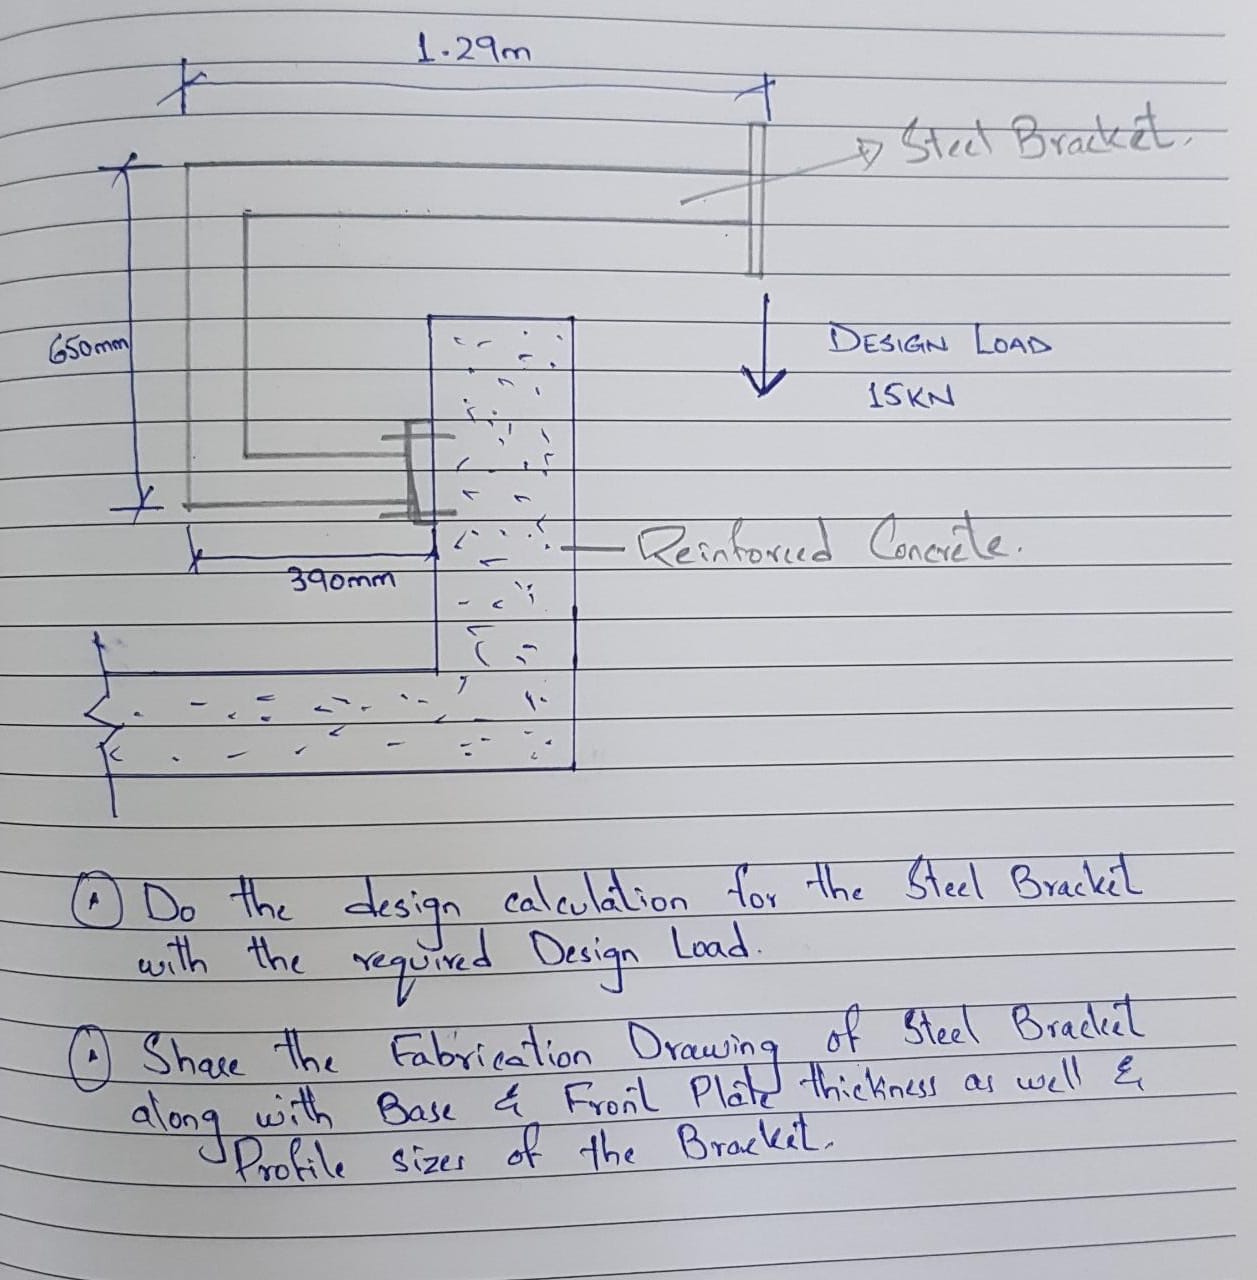 1.29m
Steel Bracket.
650mm
DESIGN LOAD
15KN
Reinforced Concrete.
390mm
Do the design calculation for the Steel Bracket
with the required Design Load.
Share the Fabrication Drawing of Steel Bracket
along with Base & Front Plate thickness as well &
Profile sizes of the Bracket.